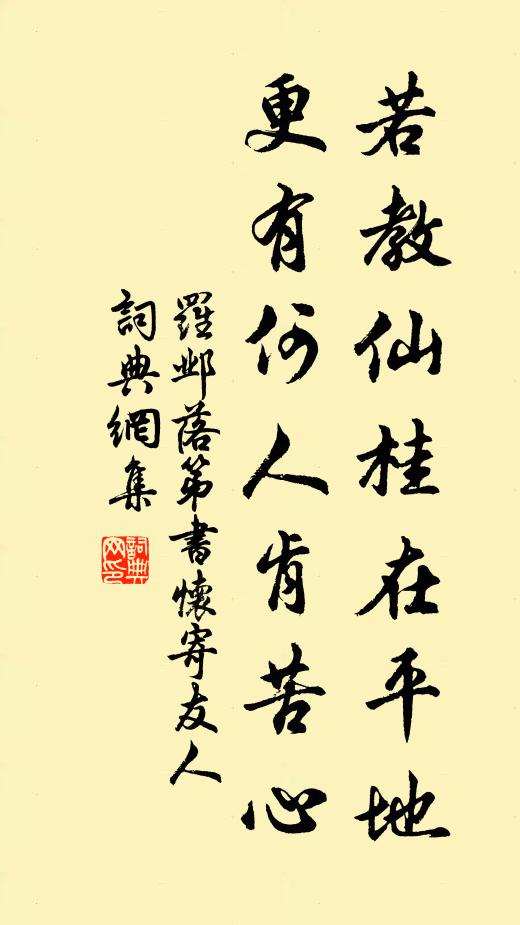 若教仙桂在平地
更有何人肯苦心
羅鄴落第書懷寄友人
詞典網集
詞典
网印